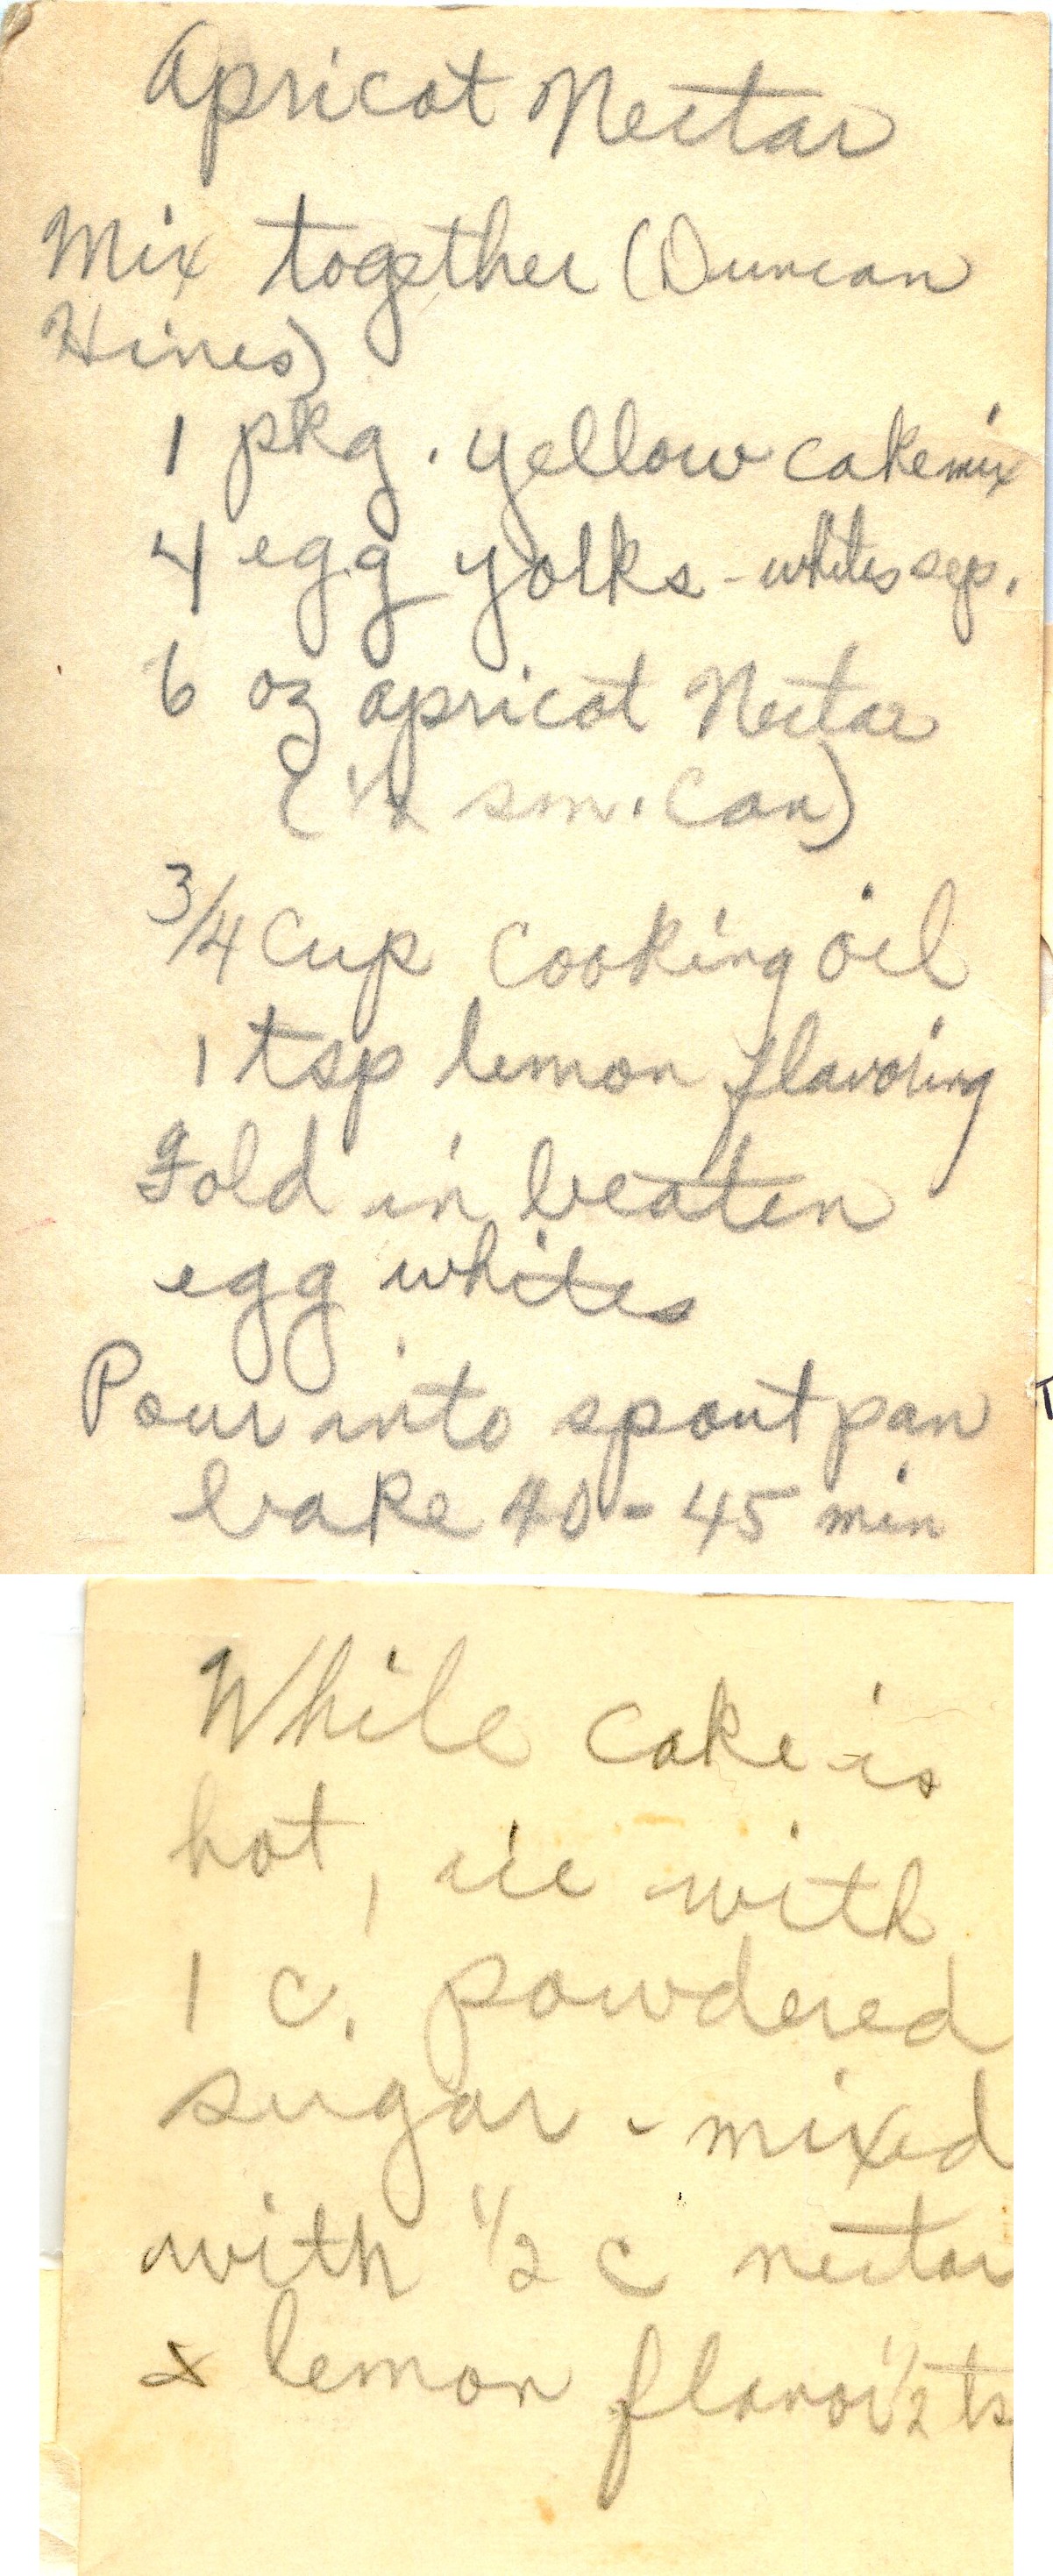 Apricot Nectar
Mix together (Duncan
Hines)
1 pkg. yellow cake mix
4 egg yolks - whites sep.
6 oz apricot Nectar
(1/2 sm. can)
3/4 cup cooking oil
1 tsp lemon flavoring
Fold in beaten
egg whites
Pour into spout pan
bake 40 - 45 min
While cake is
hot, ice with
1 c. powdered
sugar - mixed
with 1/2 c nectar
& lemon flavor 1/2 ts